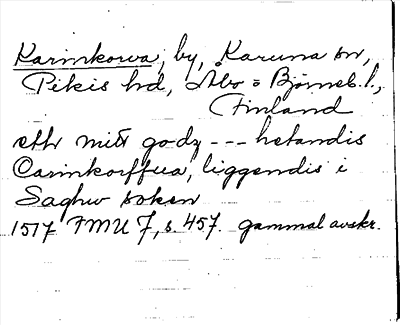 Karinkorva, by, Karuna sn,
Pikis hd, Åbo = Björneb. l.,
Finland
ett mitt godz --- hetandis
Carinkorffua, liggendis i
Saghw soken
1517 FMU 7, s. 457. gammal avskr.